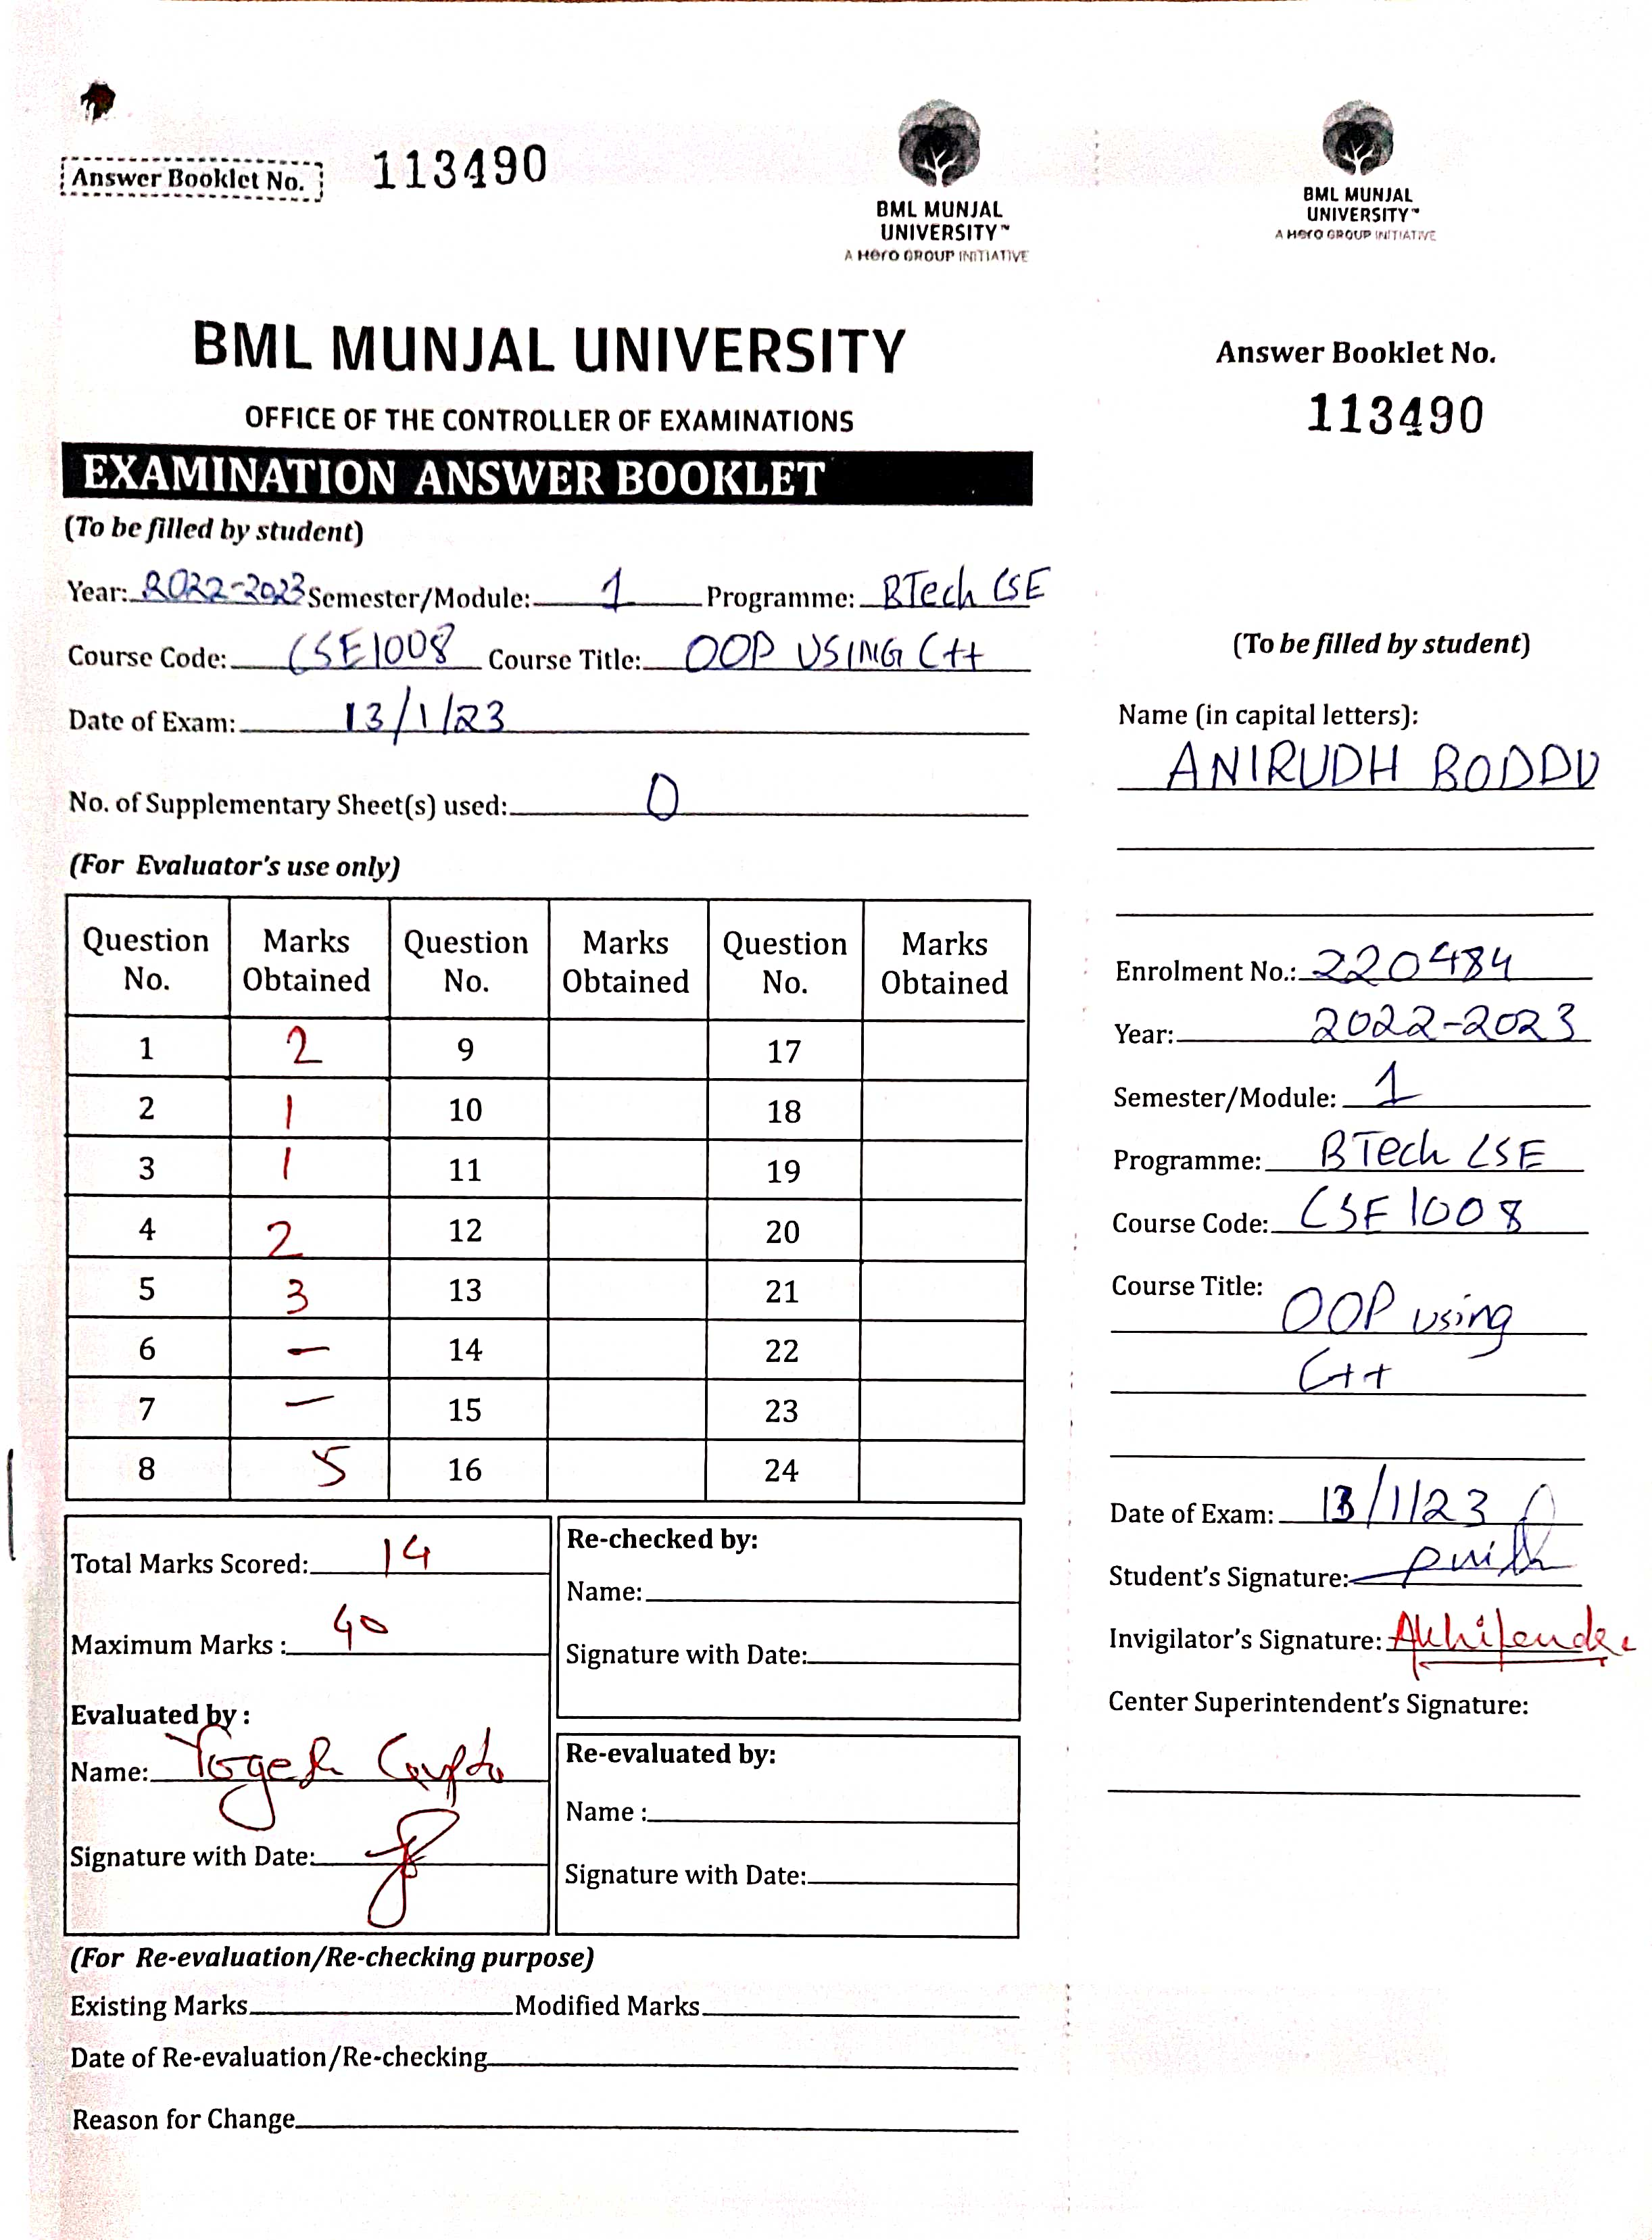 Answer Booklet No. 113490
BML MUNJAL
UNIVERSITY™
A Hero GROUP INITIATIVE
BML MUNJAL UNIVERSITY
OFFICE OF THE CONTROLLER OF EXAMINATIONS
EXAMINATION ANSWER BOOKLET
(To be filled by student)
Year: 2022-2023 Semester/Module: 1 Programme: BTech CSE
Course Code: CSE1008 Course Title: OOP USING C++
Date of Exam: 13/1/23
No. of Supplementary Sheet(s) used: 0
(For Evaluator's use only)
Question No. Marks Obtained Question No. Marks Obtained Question No. Marks Obtained
1 2 9 17
2 1 10 18
3 1 11 19
4 2 12 20
5 3 13 21
6 – 14 22
7 – 15 23
8 5 16 24
Total Marks Scored: 14
Maximum Marks : 40
Evaluated by :
Name: Yogesh Gupta
Signature with Date:
Re-checked by:
Name:
Signature with Date:
Re-evaluated by:
Name :
Signature with Date:
(For Re-evaluation/Re-checking purpose)
Existing Marks Modified Marks
Date of Re-evaluation/Re-checking
Reason for Change
BML MUNJAL
UNIVERSITY™
A Hero GROUP INITIATIVE
Answer Booklet No.
113490
(To be filled by student)
Name (in capital letters):
ANIRUDH BODDU
Enrolment No.: 220484
Year: 2022-2023
Semester/Module: 1
Programme: BTech CSE
Course Code: CSE1008
Course Title: OOP using
C++
Date of Exam: 13/1/23
Student's Signature:
Invigilator's Signature:
Center Superintendent's Signature: